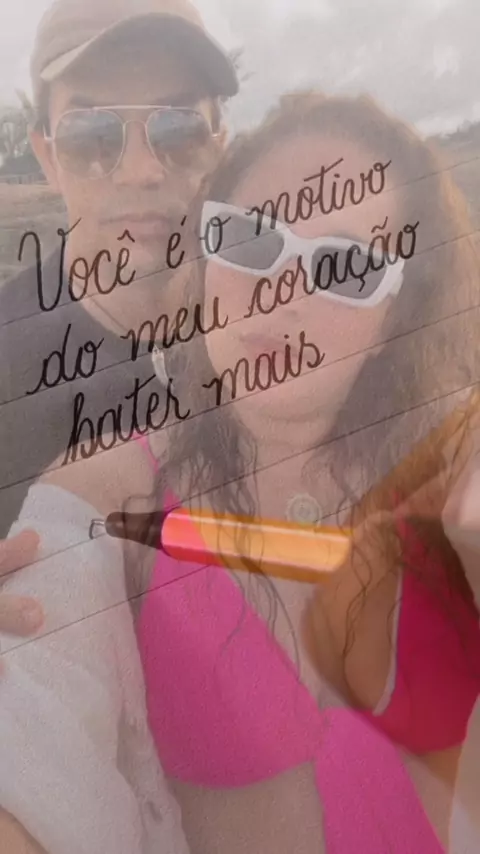 Você é o motivo
do meu coração
bater mais